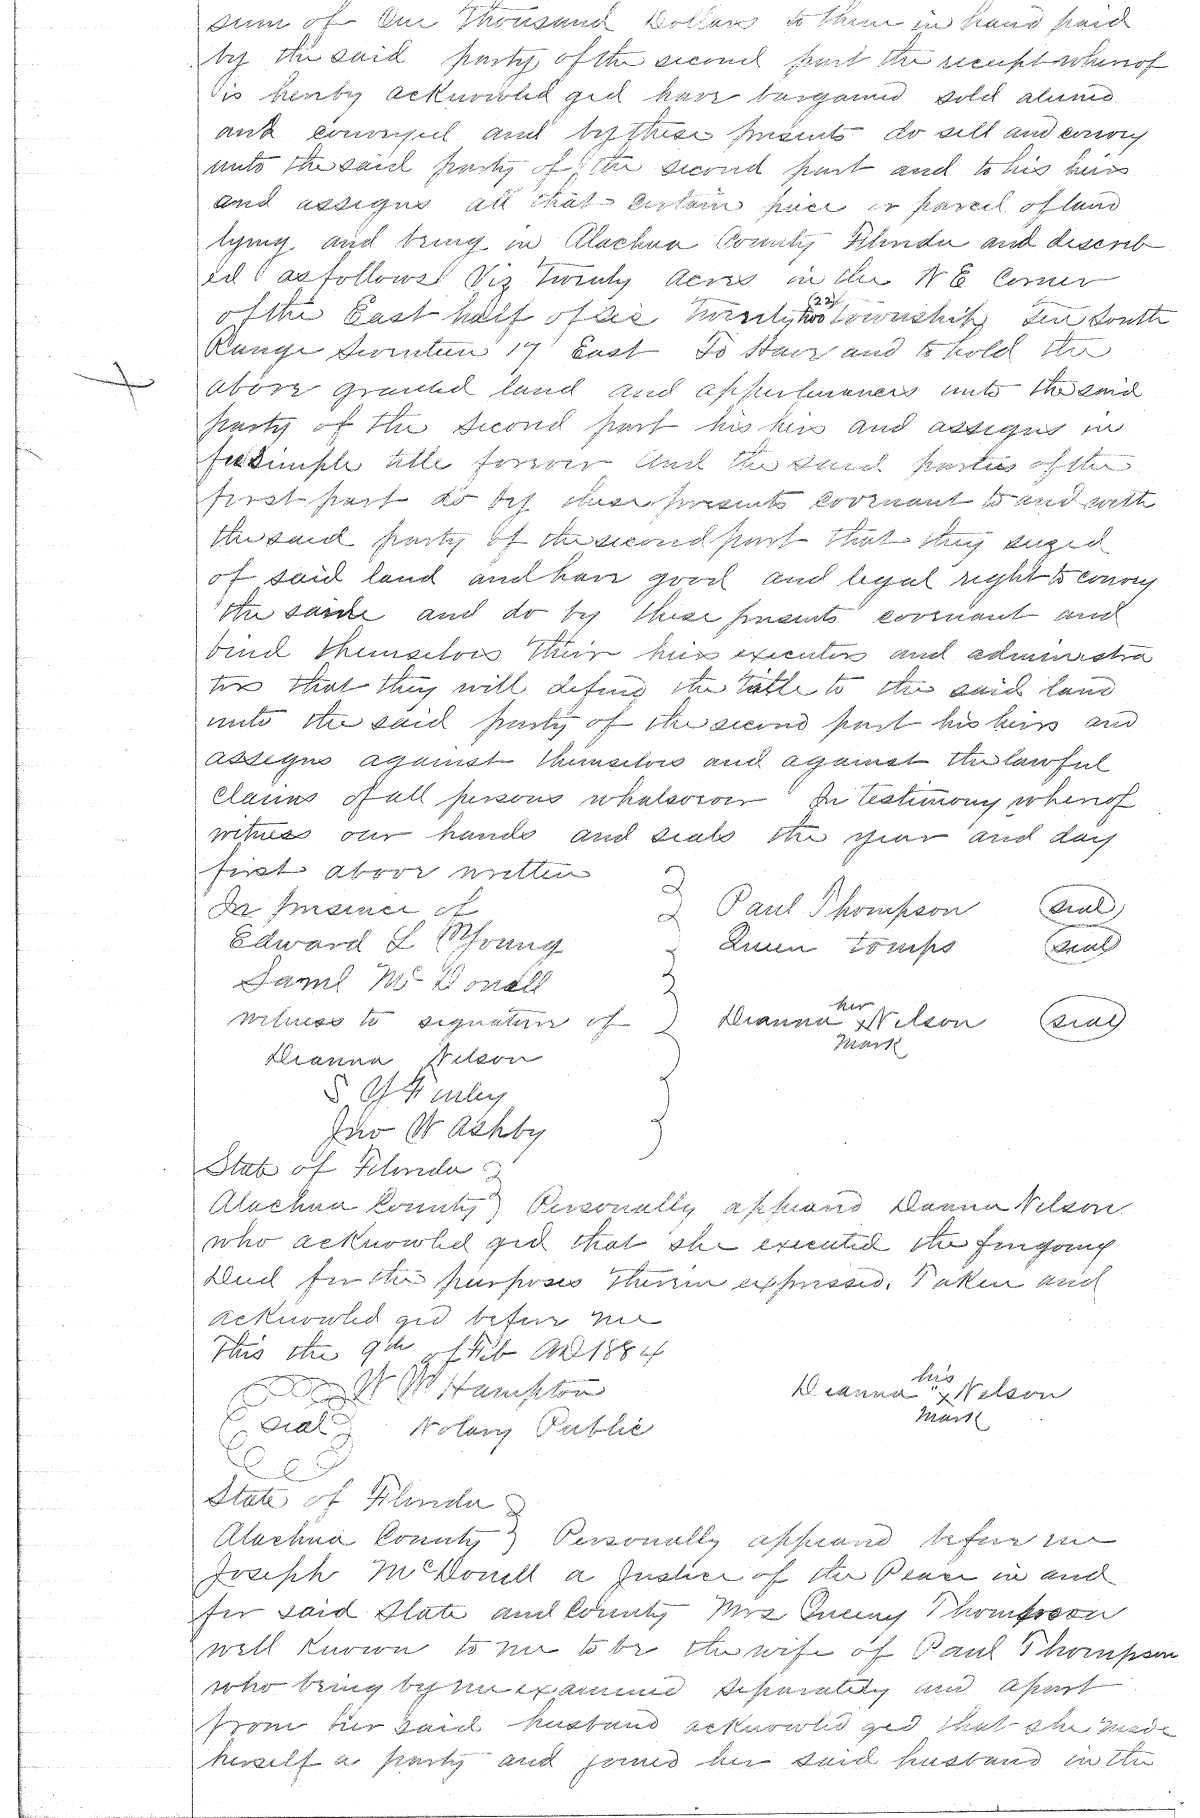 sum of One Thousand Dollars to them in hand paid
by the said party of the second part the receipt whereof
is hereby acknowledged have bargained sold aliened
and conveyed and by these presents do sell and convey
unto the said party of the second part and to his heirs
and assigns all that certain piece or parcel of land
lying and being in Alachua County Florida and describ
ed as follows Viz Twenty Acres in the N E Corner
of the East half of Sec Twenty two (22) Township Ten South
Range Seventeen 17 East To Have and to hold the
above granted land and appurtenances unto the said
party of the second part his heirs and assigns in
fee Simple title forever And the said parties of the
first part do by these presents covenant to and with
the said party of the second part that they seized
of said land and have good and legal right to convey
the same and do by these presents covenant and
bind themselves their heirs executors and administra
tors that they will defend the Title to the said land
unto the said party of the second part his heirs and
assigns against themselves and against the lawful
claims of all persons whatsoever In testimony whereof
witness our hands and seals the year and day
first above written
In presence of Paul Thompson (seal)
Edward L Young Queen Tomps (seal)
Saml McDonell
witness to signature of Dianna her x mark Nelson (seal)
Dianna Nelson
S Y Finley
Jno W Ashby
State of Florida
Alachua County Personally appeared Dianna Nelson
who acknowledged that she executed the foregoing
Deed for the purposes therein expressed. Taken and
acknowledged before me
This the 9th of Feb AD 1884
W W Hampton Dianna his x mark Nelson
seal Notary Public
State of Florida
Alachua County Personally appeared before me
Joseph McDonell a Justice of the Peace in and
for said State and County Mrs Queeny Thompson
well known to me to be the wife of Paul Thompson
who being by me examined separately and apart
from her said husband acknowledged that she made
herself a party and joined her said husband in the